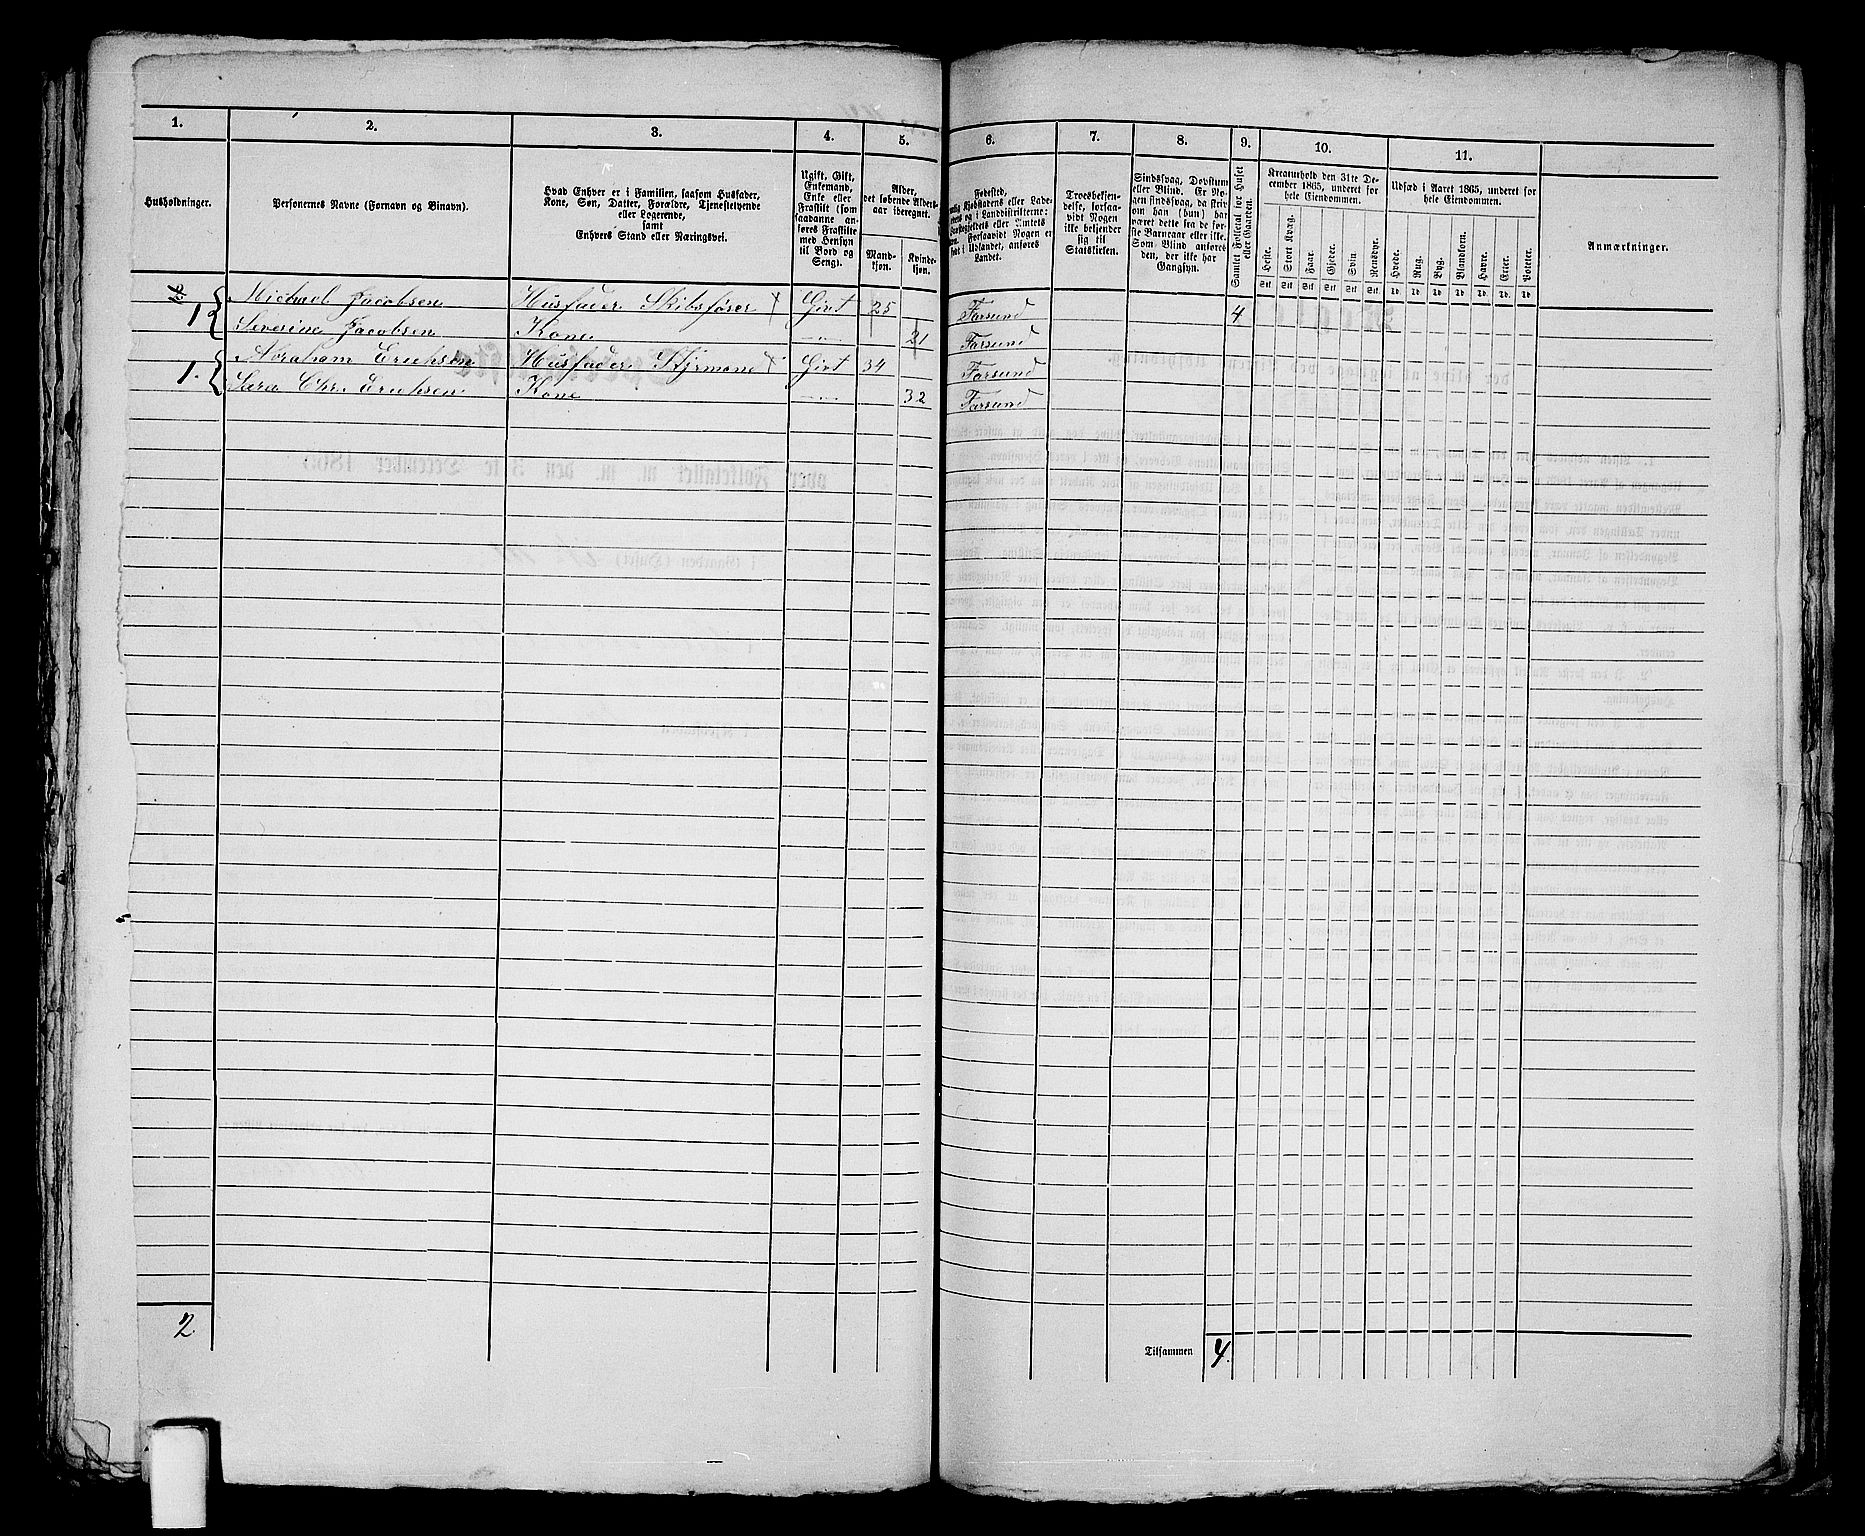 1. 2. 3. 4. 5. 6. 7. 8. 9. 10. 11.
Husholdninger.
Personernes Navne (Fornavn og Binavn).
Hvad Enhver er i Familien, saasom Husfader,
Kone, Søn, Datter, Forældre, Tjenestetyende
eller Logerende,
samt
Enhvers Stand eller Næringsvei.
Ugift, Gift,
Enkemand,
Enke eller
Fraskilt (som
saadanne an-
føres Fraskilte
med Hensyn
til Bord og
Seng).
Alder,
det løbende Alders-
aar iberegnet.
Mand-
kjøn.
Kvinde-
kjøn.
Fødested,
Kjøbstadens eller Lade-
og i Landdistrikterne:
eller Amtets
Forsaavidt Nogen er
født i Udlandet, anføres
Landet.
Troesbekjen-
delse, forsaa-
vidt Nogen
ikke bekjender
sig til
Statskirken.
Sindssvag, Døvstum
eller Blind. Er No-
gen sindssvag, da skriv
om han (hun) har
været dette fra de før-
ste Barneaar eller ikke.
Som Blind anføres
den, der ikke har
Gangsyn.
Samlet Folketal for Huset
eller Gaarden.
Kreaturhold den 31te De-
cember 1865, underet for
hele Eiendommen.
Heste. Stort Kvæg. Faar. Gjeder. Svin. Rensdyr.
Udsæd i Aaret 1865, underet for
hele Eiendommen.
Hvede. Rug. Byg. Blandkorn. Havre. Erter. Poteter.
Anmærkninger.
Stk. Stk. Stk. Stk. Stk. Stk. Td. Td. Td. Td. Td. Td. Td.
1 Michael Jacobsen Husfader Skibsfører Givt 25 Farsund 4
Severine Jacobsen Kone 21 Farsund
1. Abraham Erichsen Husfader Styrmand Givt 34 Farsund
Sara Chr. Erichsen Kone 32 Farsund
2
Tilsammen 4.